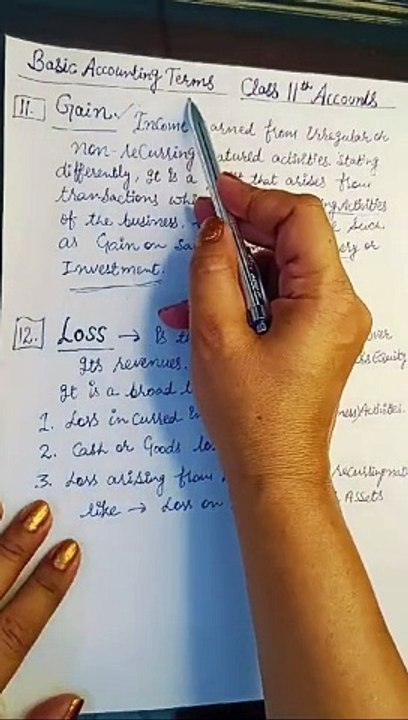 Basic Accounting Terms Class 11th Accounts
11. Gain Income arned from Irregular or
non-recurring atured activities. Stating
differently, It is a that arises from
transactions whi ng Activities
of the business. Such
as Gain on Sa ery or
Investment.
12. Loss → Is t over
Its revenues. Equity
It is a broad t
1. Loss incurred in ness) Activities.
2. Cash or Goods lo
3. Loss arising from recurring nat
like → Loss on Assets